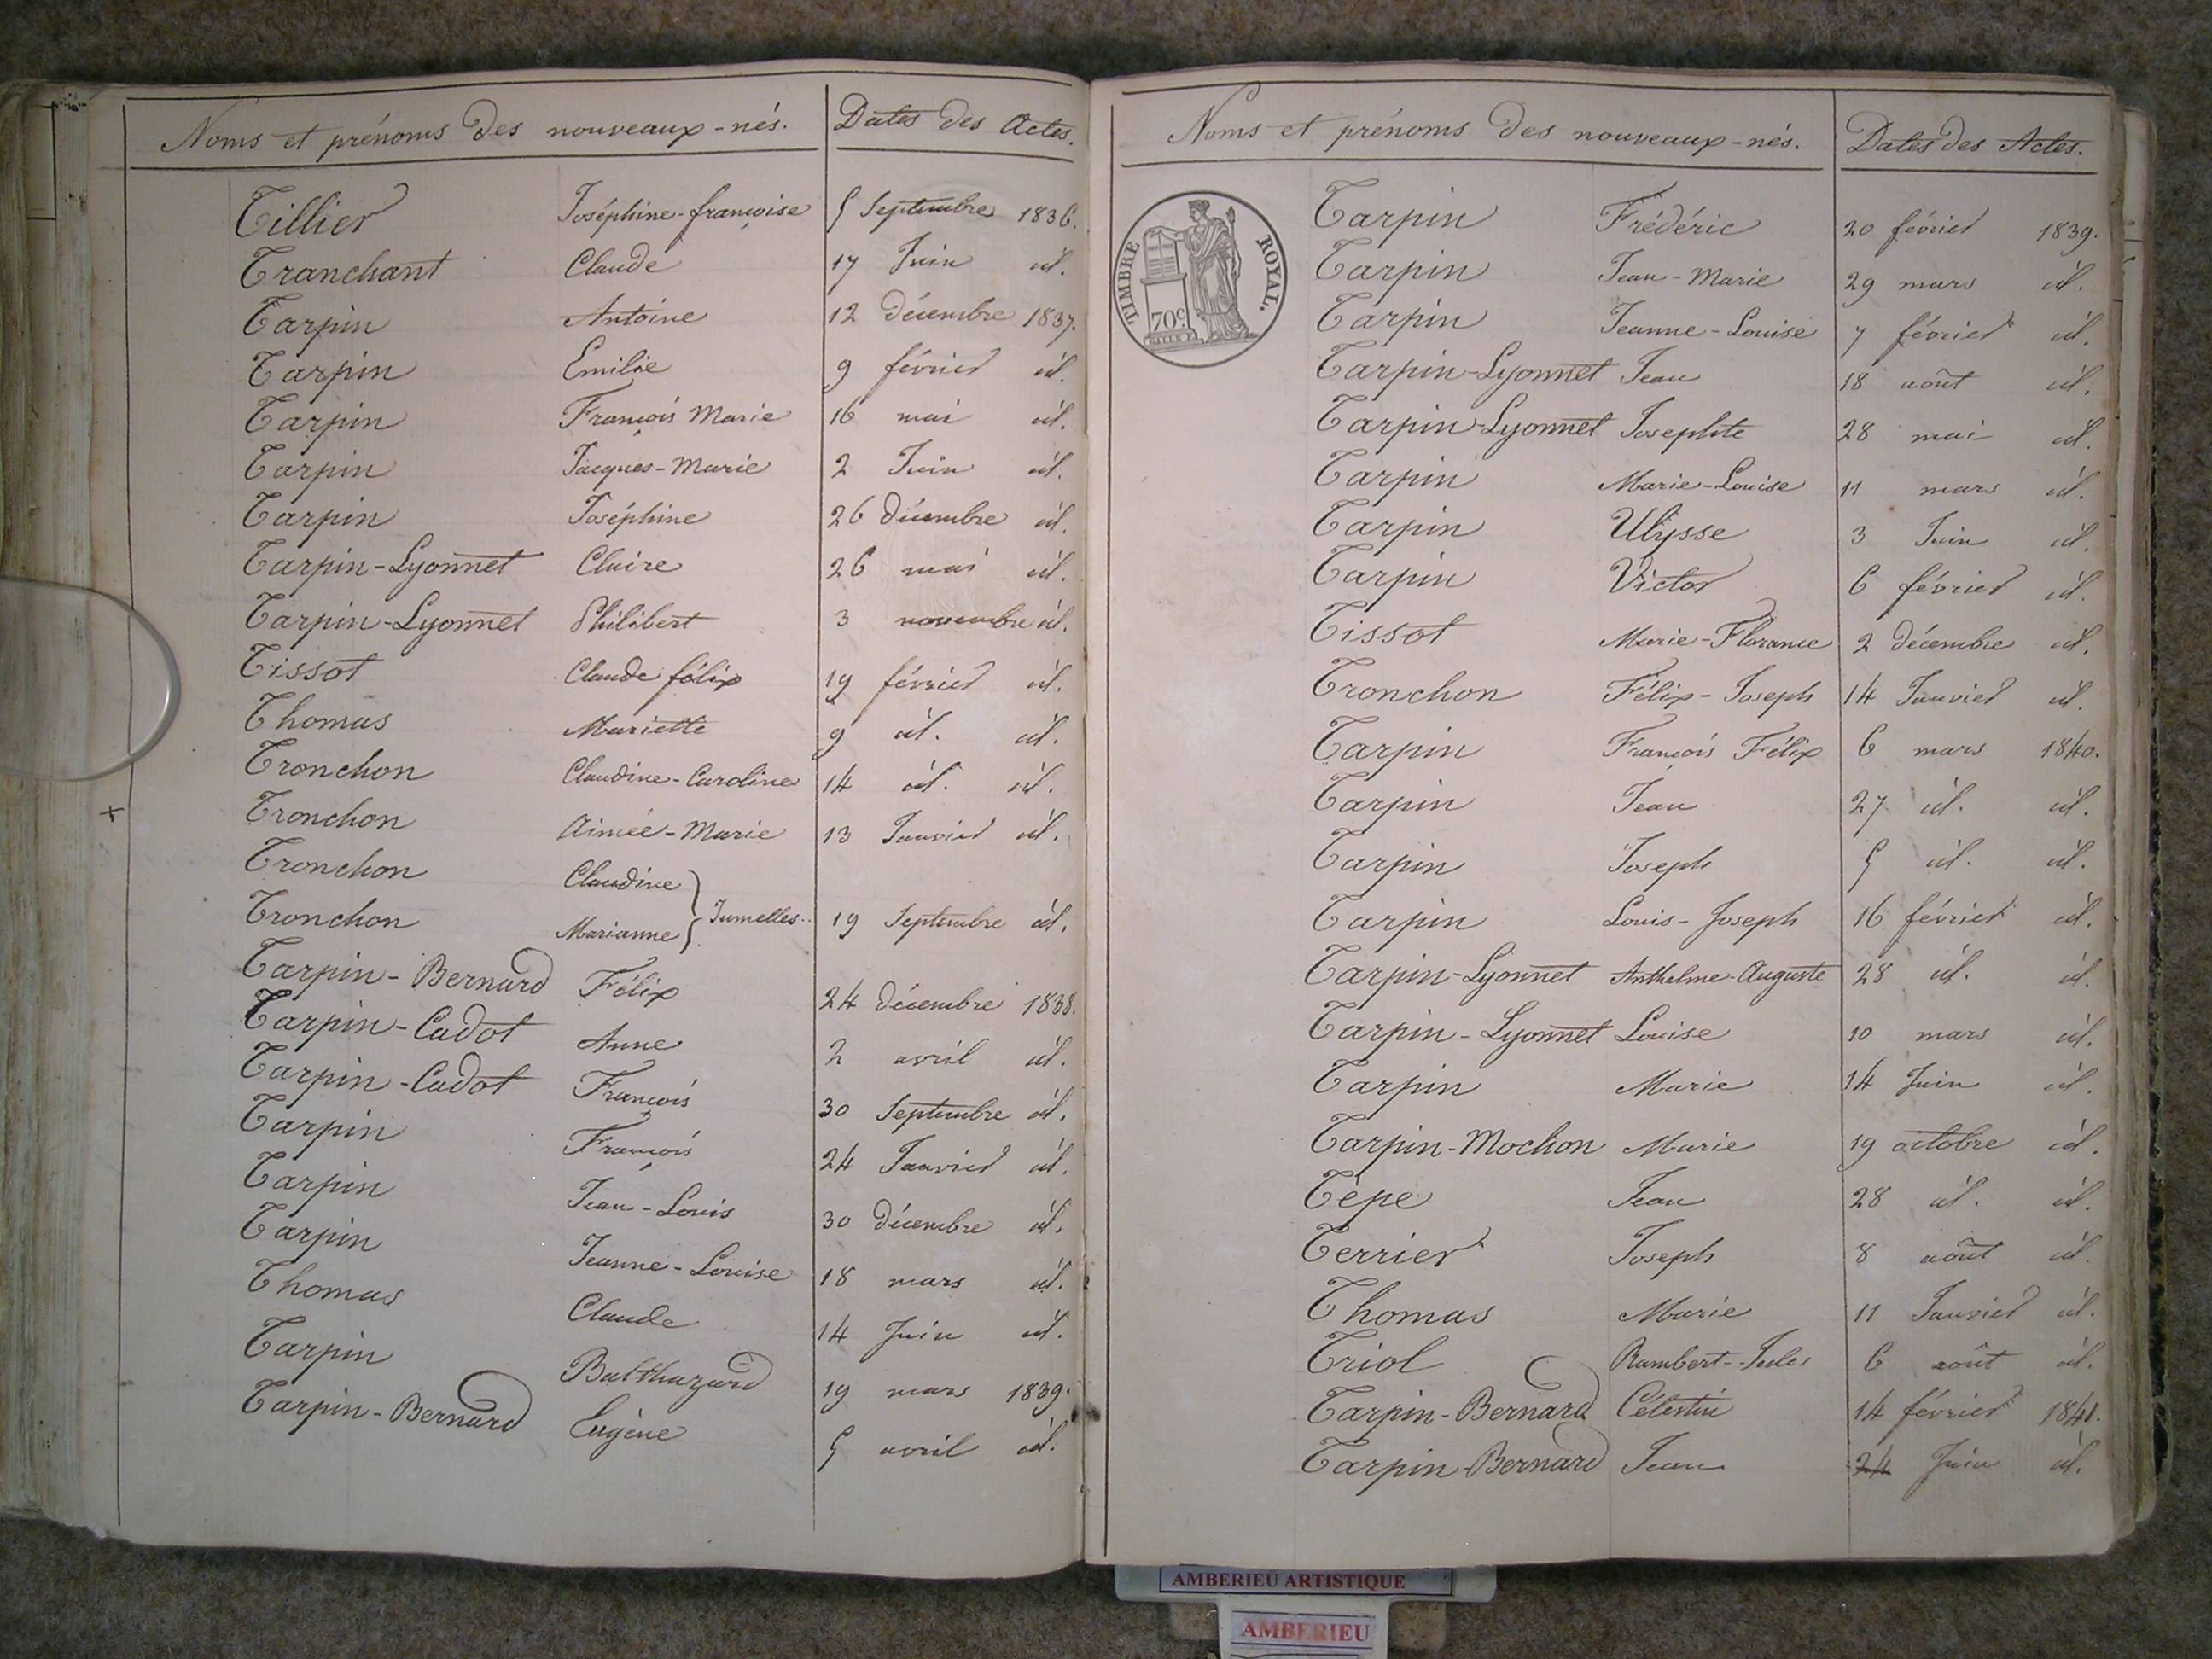 Noms et prénoms des nouveaux-nés. Dates des Actes.
Tillier Joséphine-françoise 5 Septembre 1836.
Tranchant Claude 17 Juin id.
Tarpin Antoine 12 Décembre 1837.
Tarpin Emilie 9 février id.
Tarpin François Marie 16 mai id.
Tarpin Jacques-Marie 2 Juin id.
Tarpin Joséphine 26 Décembre id.
Tarpin-Lyonnet Claire 26 mai id.
Tarpin-Lyonnet Philibert 3 novembre id.
Tissot Claude félix 19 février id.
Thomas Mariette 9 id. id.
Tronchon Claudine-Caroline 14 id. id.
Tronchon Aimée-Marie 13 Janvier id.
Tronchon Claudine
Tronchon Marianne Jumelles.. 19 Septembre id.
Tarpin-Bernard Félix 24 Décembre 1838.
Tarpin-Cadot Anne 2 avril id.
Tarpin-Cadot François 30 Septembre id.
Tarpin François 24 Janvier id.
Tarpin Jean-Louis 30 Décembre id.
Tarpin Jeanne-Louise 18 mars id.
Thomas Claude 14 Juin id.
Tarpin Balthazard 19 mars 1839.
Tarpin-Bernard Eugène 5 avril id.
Noms et prénoms des nouveaux-nés. Dates des Actes.
TIMBRE ROYAL.
70c.
Tarpin Frédéric 20 février 1839.
Tarpin Jean-Marie 29 mars id.
Tarpin Jeanne-Louise 7 février id.
Tarpin-Lyonnet Jean 18 août id.
Tarpin-Lyonnet Josephte 28 mai id.
Tarpin Marie-Louise 11 mars id.
Tarpin Ulysse 3 Juin id.
Tarpin Victor 6 février id.
Tissot Marie-Florance 2 décembre id.
Tronchon Félix-Joseph 14 Janvier id.
Tarpin François Félix 6 mars 1840.
Tarpin Jean 27 id. id.
Tarpin Joseph 5 id. id.
Tarpin Louis-Joseph 16 février id.
Tarpin-Lyonnet Anthelme-Auguste 28 id. id.
Tarpin-Lyonnet Louise 10 mars id.
Tarpin Marie 14 Juin id.
Tarpin-Mochon Marie 19 octobre id.
Tèpe Jean 28 id. id.
Terrier Joseph 8 août id.
Thomas Marie 11 Janvier id.
Triol Rambert-Jules 6 août id.
Tarpin-Bernard Célestin 14 février 1841.
Tarpin-Bernard Jean 24 Juin id.
AMBERIEU ARTISTIQUE
AMBERIEU